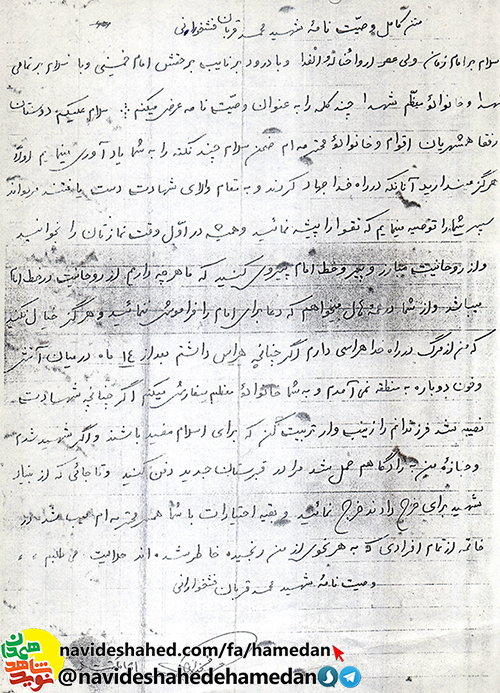 متن کامل وصیت نامهٔ شهید محمد قربان فتخوارانی
سلام بر امام زمان ولی عصر ارواحنا له الفدا و با درود بر نایب برحقش امام خمینی و با سلام بر تمامی
شهدا و خانوادهٔ معظم شهدا چند کلمه را به عنوان وصیّت نامه عرض میکنم سلام علیکم دوستان
رفقا همشهریان اقوام و خانوادهٔ محترمه ام ضمن سلام چند نکته را به شما یادآوری مینمایم اولاً
هرگز مپندارید آنانکه در راه خدا جهاد کردند و به مقام والای شهادت دست یافتند مرده‌اند
سپس شما را توصیه مینمایم که تقوا را پیشه نمائید و همیشه در اوّل وقت نمازتان را بخوانید
و از روحانیت مبارز و پیرو خط امام پیروی کنید که ما هر چه داریم از روحانیت در خط امام
میباشد و از شما در همه حال میخواهم که دعا برای امام را فراموش ننمائید و هرگز خیال نکنید
که من از مرگ در راه خدا هراسی دارم اگر چنانچه هراس داشتم بعد از ١٤ ماه در میان آتش
و خون دوباره به منطقه نمی آمدم و به شما خانوادهٔ معظم سفارش میکنم اگر چنانچه شهادت
نصیبم شد فرزندانم را زینب وار تربیت کن که برای اسلام مفید باشند و اگر شهید شدم
و جنازهٔ من به زادگاهم حمل شد مرا در قبرستان جدید دفن کنید و تا جائی که از بنیاد
شهید برای خرج دادند خرج نمائید و بقیه اختیارات با شما همسر محترمه ام میباشد در
خاتمه از تمام افرادی که به هر نحوی از من رنجیده خاطر شده اند حلالیت می طلبم
وصیت نامهٔ شهید محمد قربان فتخوارانی
نوید شاهد همدان
navideshahed.com/fa/hamedan
@navideshahedehamedan